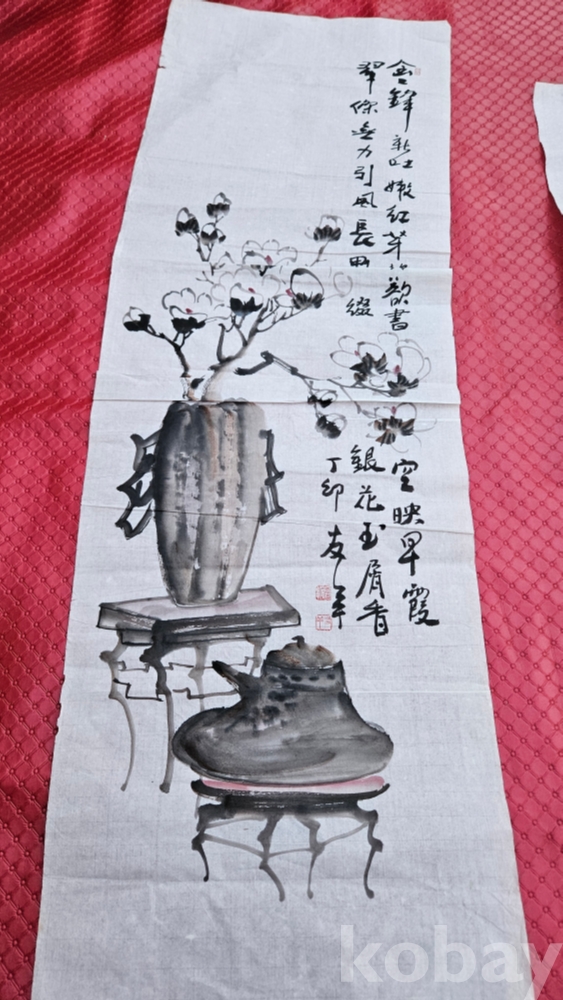 含鋒新吐嫩红芽勢欲書
空映早霞
翠條無力引風長点綴
銀花玉屑香
丁卯 友
kobay